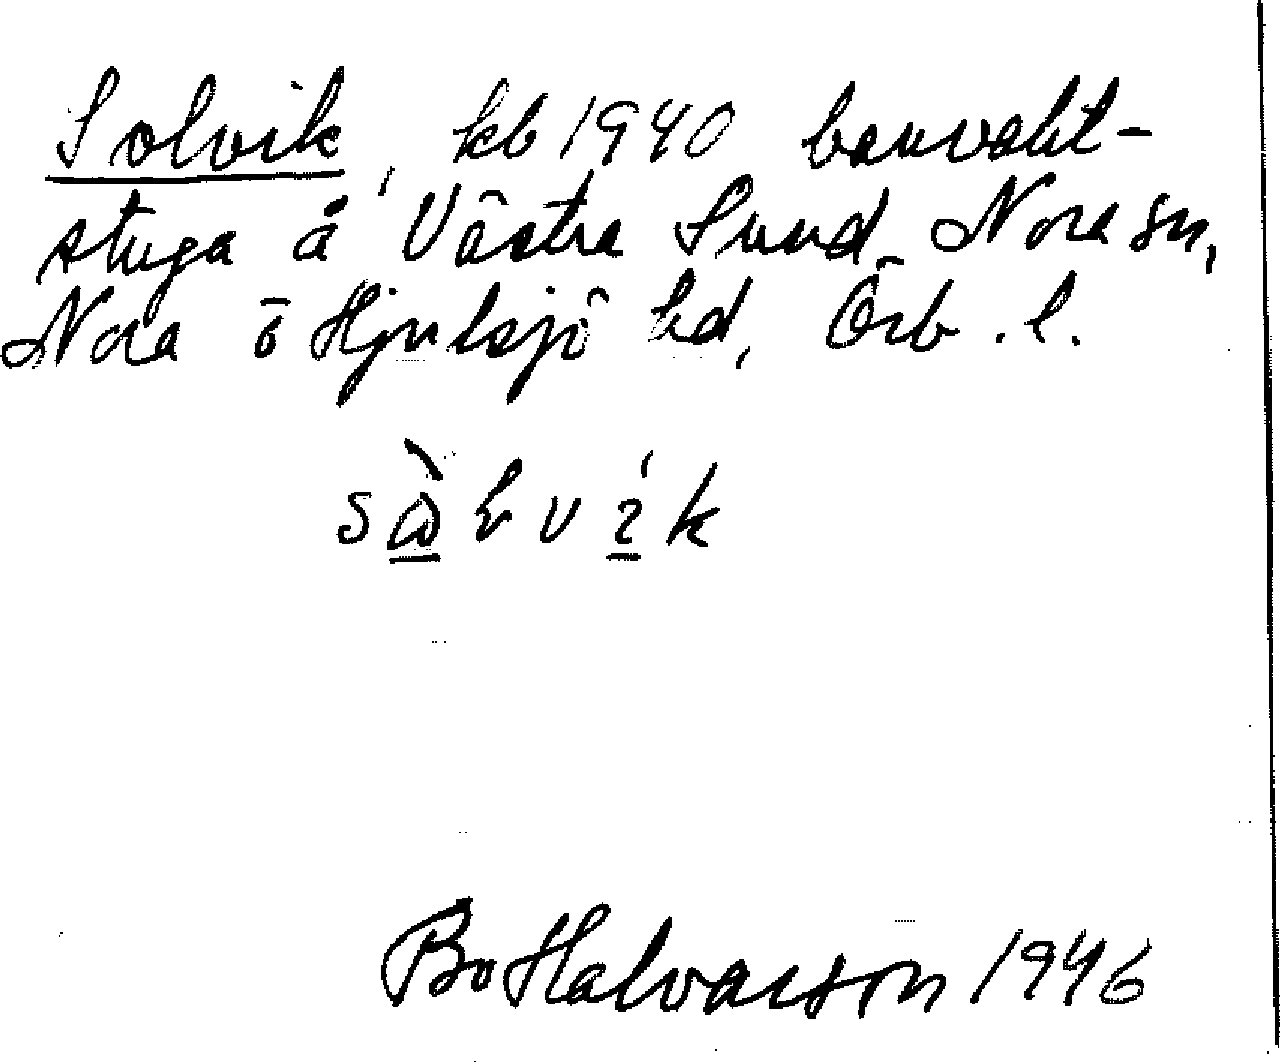 Solvik, kb 1940 banvakt-
stuga å Västra Sund, Nora sn,
Nora o Hjulsjö hd, Örb. l.
Bo Halvarson 1946